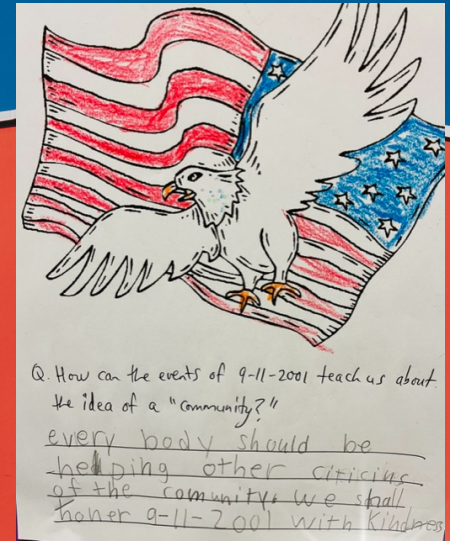 Q. How can the events of 9-11-2001 teach us about
the idea of a "community?"
every body should be
helping other citicins
of the comunity. we shall
honer 9-11-2001 with Kindness